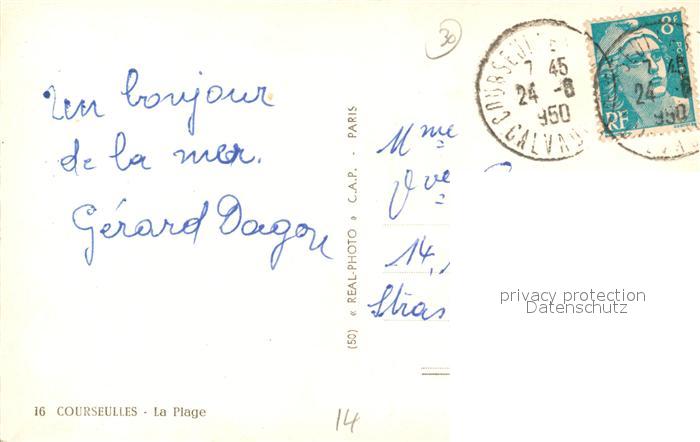 Un bonjour
de la mer.
Gérard Dagon
16 COURSEULLES - La Plage
(50) « REAL-PHOTO » C.A.P. - PARIS
30
COURSEULLES
7 45
24 -6
950
CALVADOS
8F
POSTES
RF
7 45
24 -6
950
Mme
Vve
14,
Stras
privacy protection
Datenschutz
14